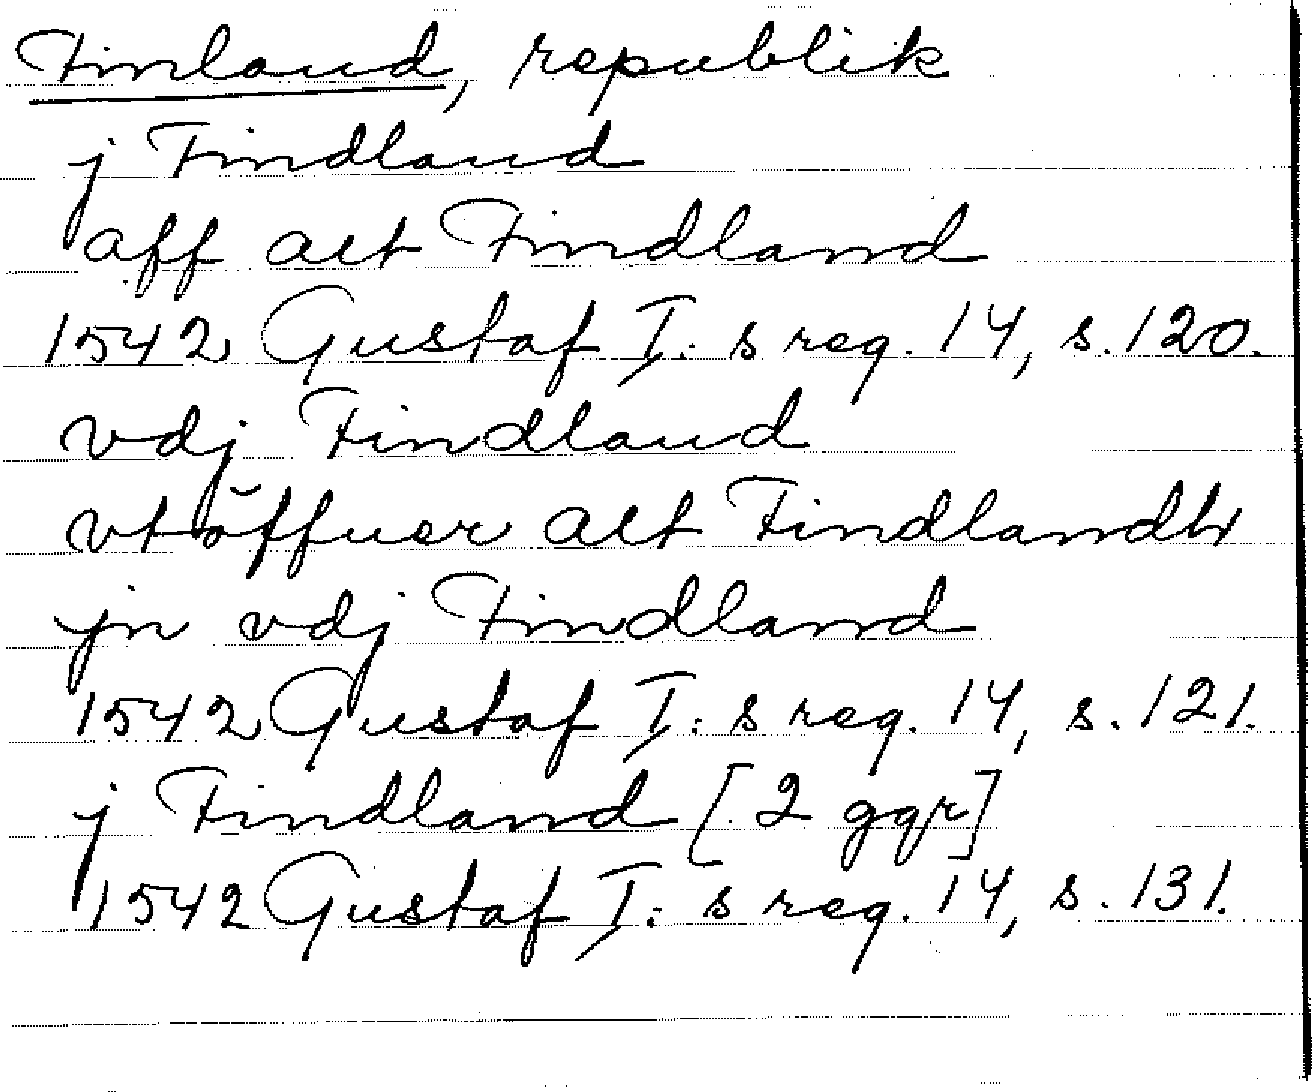 Finland, republik
j Findland
aff alt Findland
1542 Gustaf I:s reg. 14, s. 120.
vdj Findland
vtöffuer alt Findlandh
jn vdj Findland
1542 Gustaf I:s reg. 14, s. 121.
j Findland [2 ggr]
1542 Gustaf I:s reg. 14, s. 131.